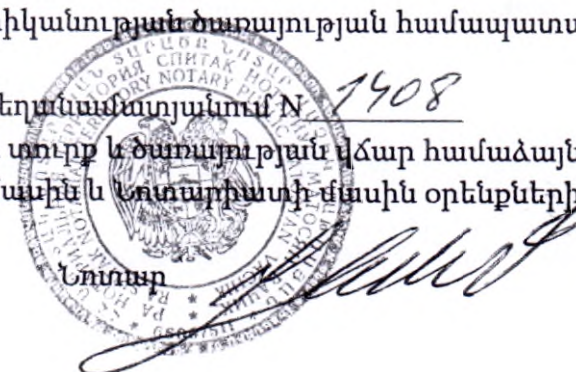 իկանության ծառայության համապատա
եղանամատյանում N 1408
տուրք և ծառայության վճար համաձայն
մասին և Նոտարիատի մասին օրենքների
Նոտար